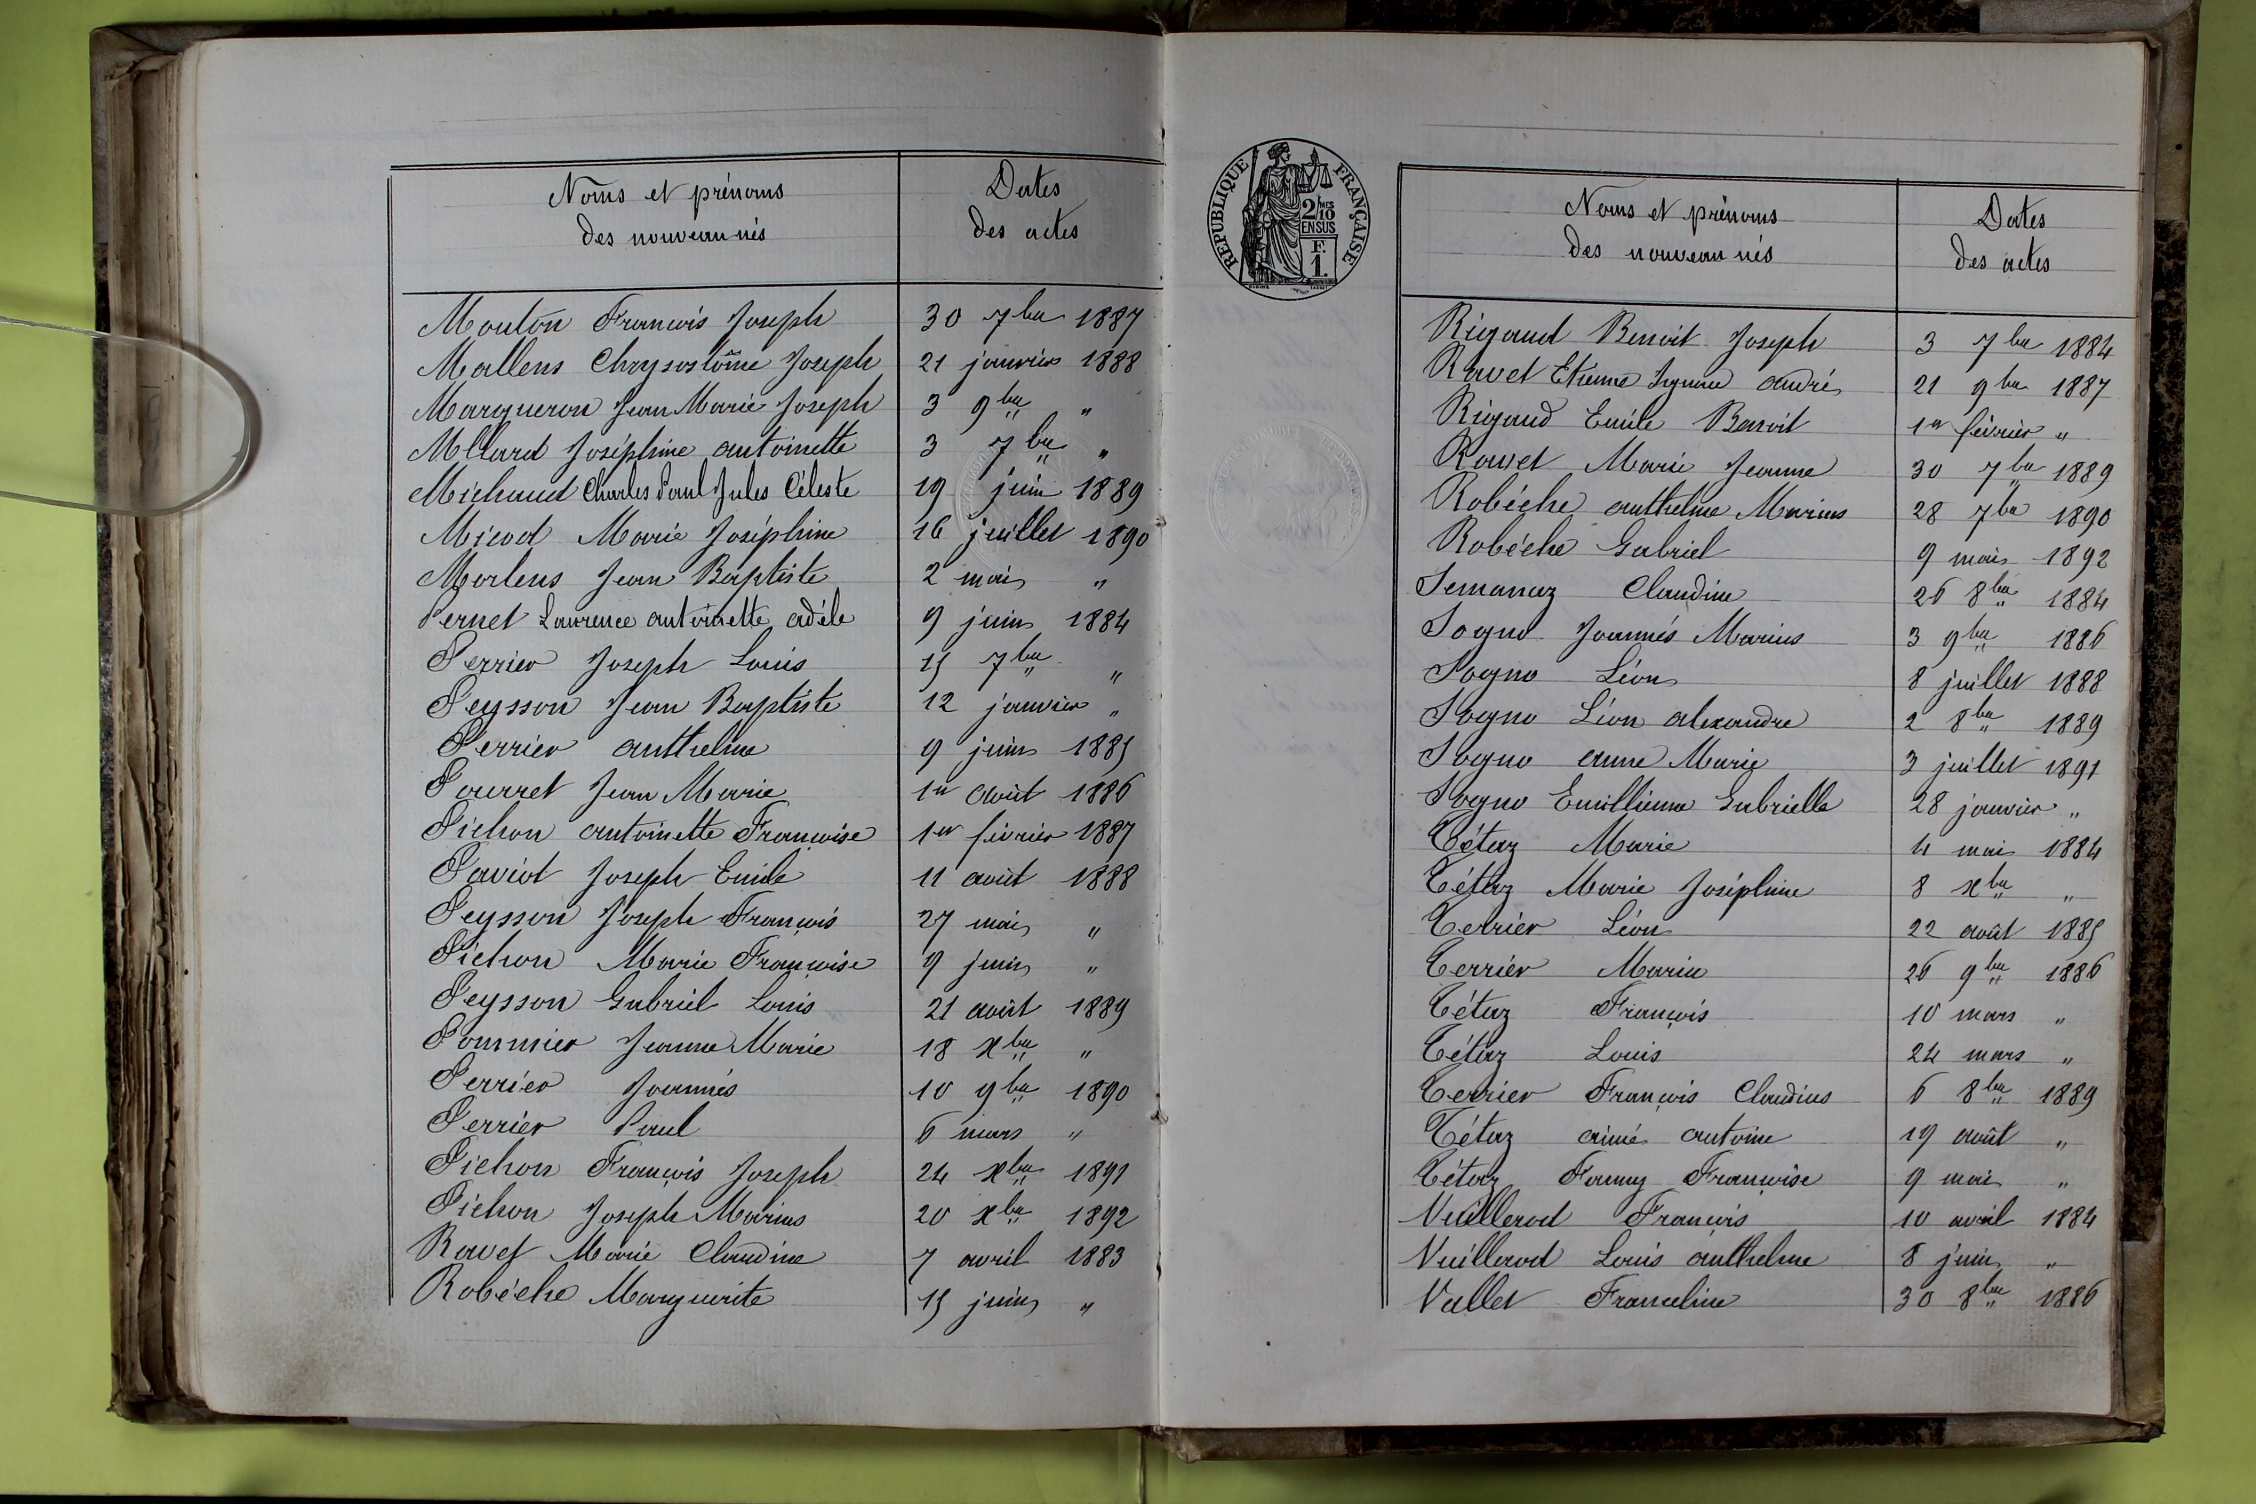 Noms et prénoms
des nouveau nés
Dates
des actes
Mouton François Joseph 30 7bre 1887
Mallens Chrysostôme Joseph 21 janvier 1888
Margueron Jean Marie Joseph 3 9bre "
Millard Joséphine antoinette 3 7bre "
Michaud Charles Paul Jules Céleste 19 juin 1889
Micod Marie Joséphine 16 juillet 1890
Morlens Jean Baptiste 2 mai "
Pernet Laurence antoinette adèle 9 juin 1884
Perrier Joseph Louis 15 7bre "
Peysson Jean Baptiste 12 janvier "
Perrier anthelme 9 juin 1885
Pourret Jean Marie 1er août 1886
Pichon antoinette Françoise 1er février 1887
Paviot Joseph Emile 11 août 1888
Peysson Joseph François 27 mai "
Pichon Marie Françoise 9 juin "
Peysson Gabriel Louis 21 août 1889
Pommier Jeanne Marie 18 xbre "
Perrier Joannés 10 9bre 1890
Perrier Paul 6 mars "
Pichon François Joseph 24 xbre 1891
Pichon Joseph Marius 20 xbre 1892
Ravet Marie Claudine 7 avril 1883
Robéche Marguerite 15 juin "
REPUBLIQUE FRANÇAISE
2/10MES
EN SUS
F.
1.
Noms et prénoms
des nouveau nés
Dates
des actes
Rigaud Benoit Joseph 3 7bre 1884
Ravet Etienne andré 21 9bre 1887
Rigaud Emile Benoit 1er février "
Ravet Marie Jeanne 30 7bre 1889
Robéche anthelme Marius 28 7bre 1890
Robéche Gabriel 9 mai 1892
Semanaz Claudine 26 8bre 1884
Sogno Joannés Marius 3 9bre 1886
Sogno Léon 8 juillet 1888
Sogno Léon alexandre 2 8bre 1889
Sogno anne Marie 3 juillet 1891
Sogno Emillienne Gabrielle 28 janvier "
Tétaz Marie 4 mai 1884
Tétaz Marie Joséphine 8 xbre "
Terrier Léon 22 août 1885
Terrier Marie 26 9bre 1886
Tétaz François 10 mars "
Tétaz Louis 24 mars "
Terrier François Claudius 6 8bre 1889
Tétaz aimé antoine 19 août "
Tétaz Fanny Françoise 9 mai "
Vuillerod François 10 avril 1884
Vuillerod Louis anthelme 8 juin "
Vallet Franceline 30 8bre 1886